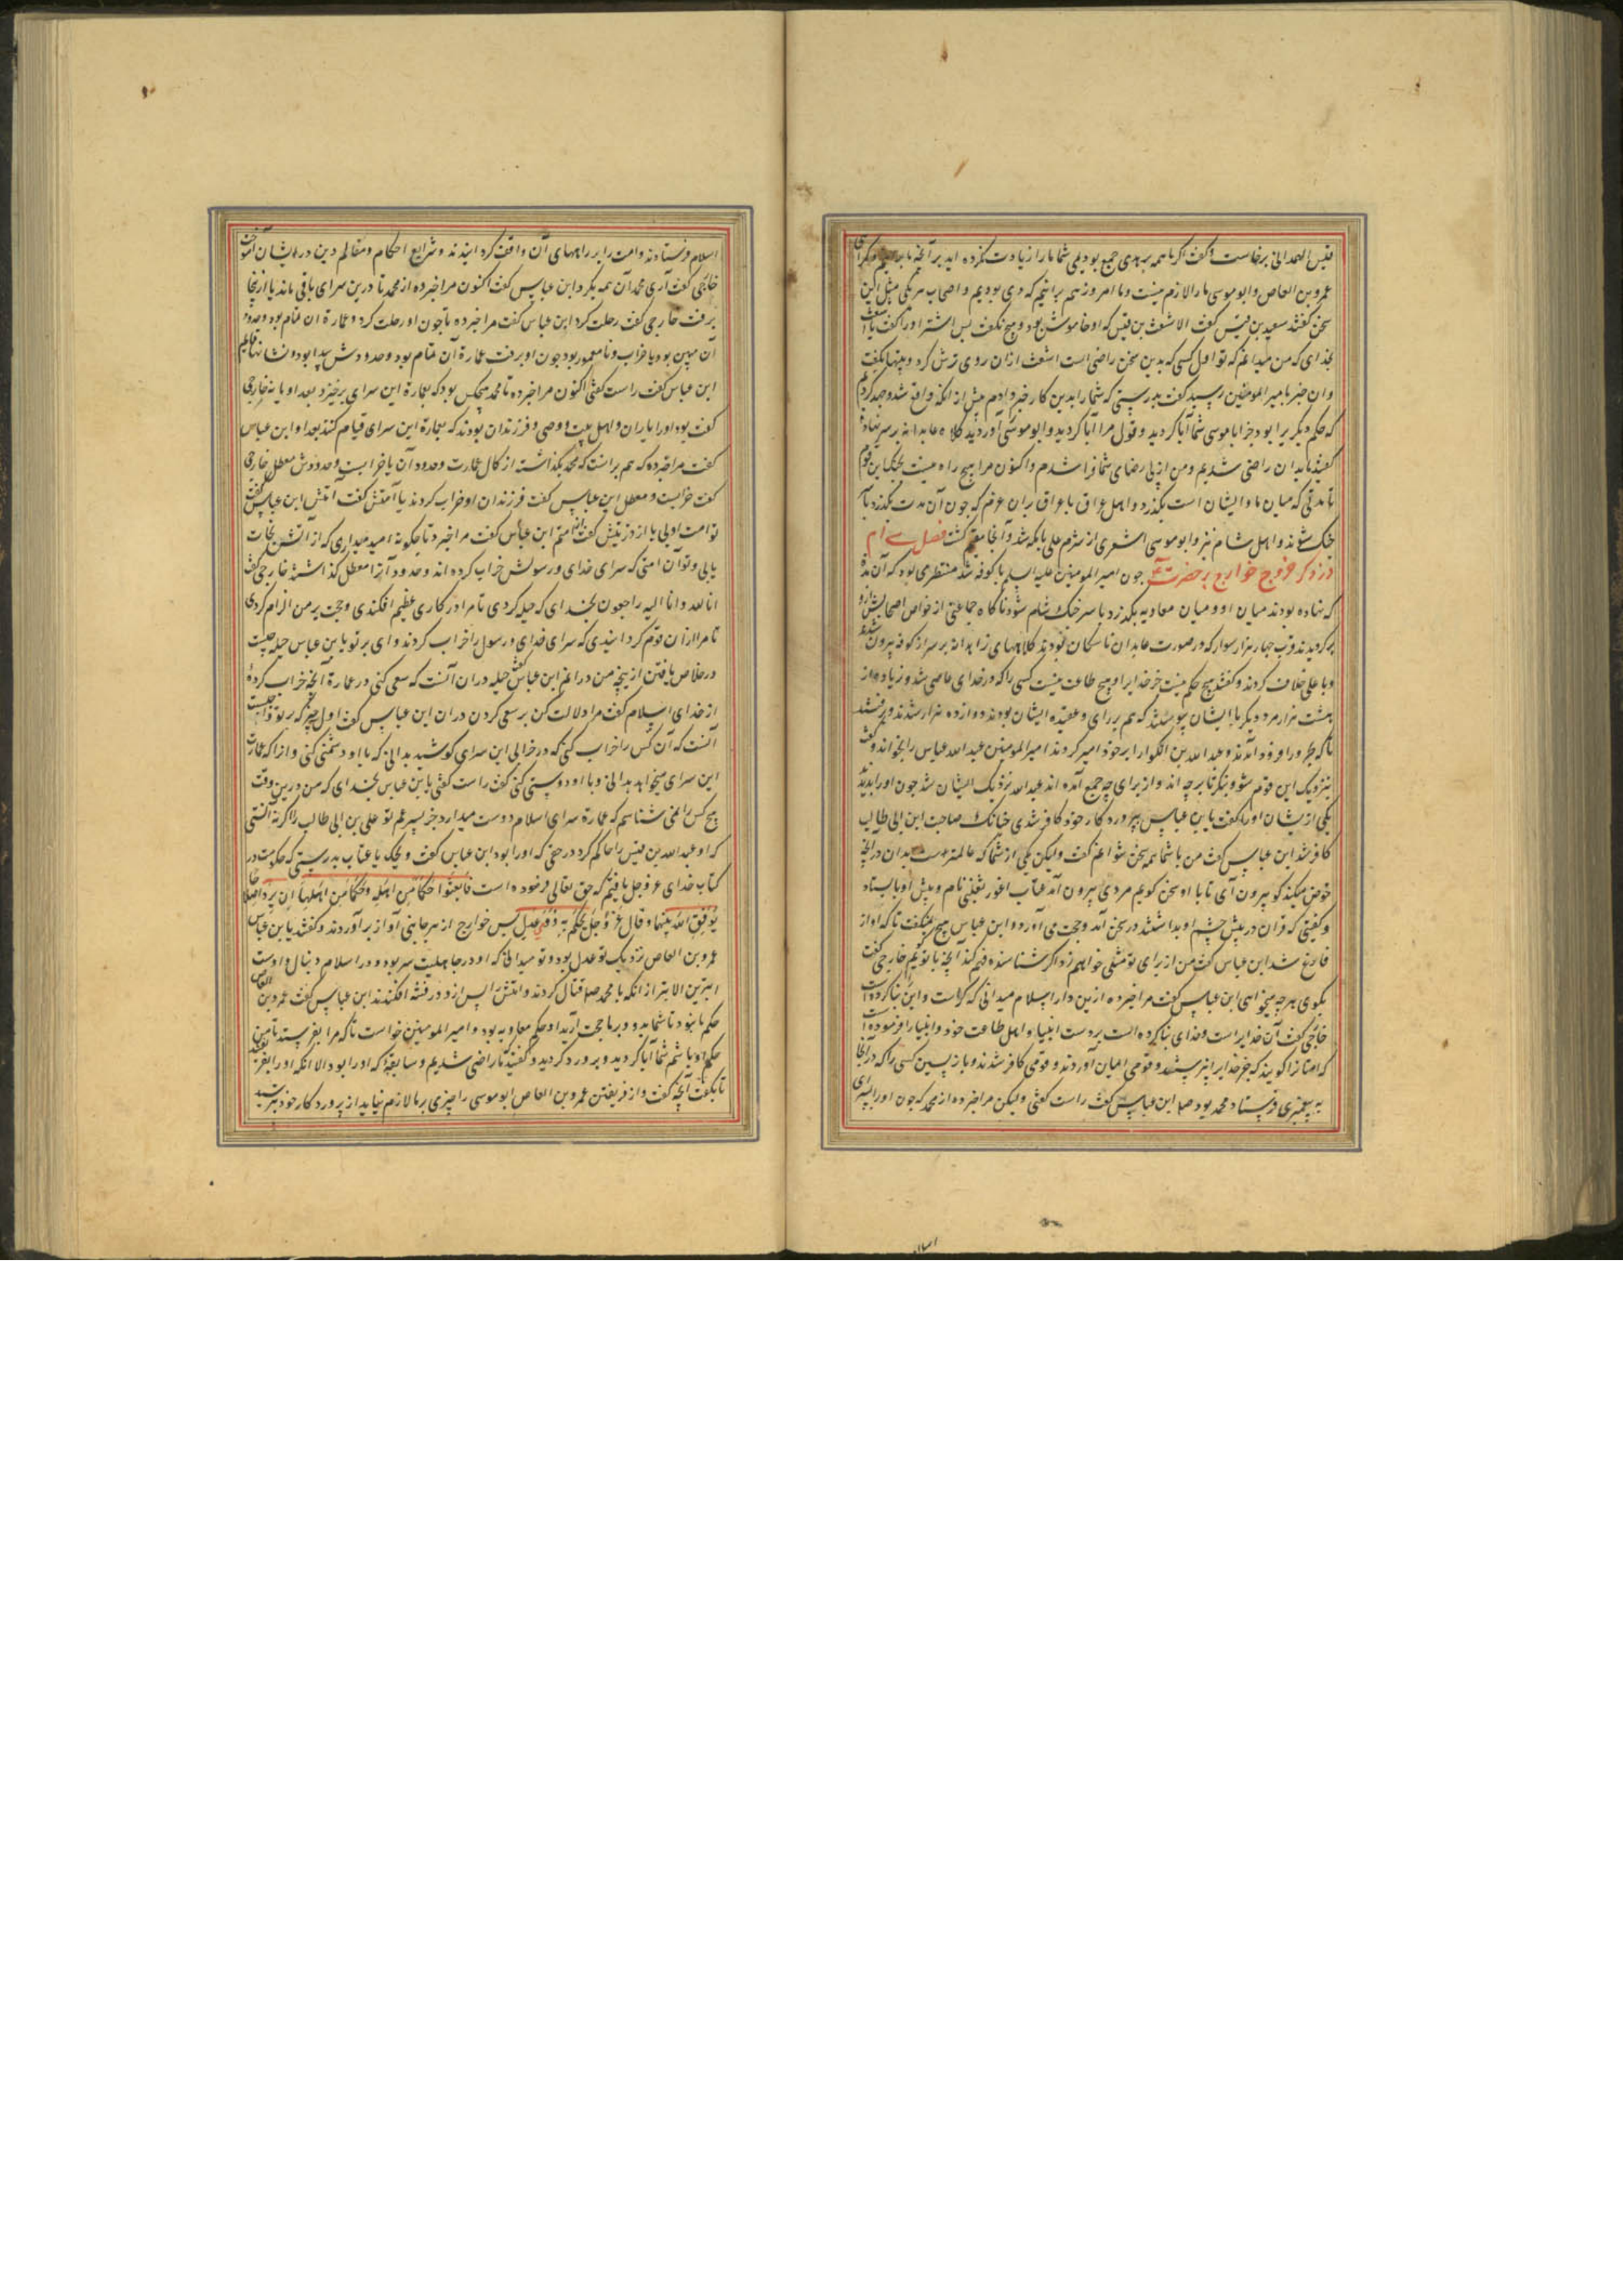 قیس الهمدانی برخاست وگفت اگر ما همه بر هدی جمع بودیمی شما ما را زیادت نکرده اید بر آنچه ما
عمرو بن العاص وابو موسی ما را لازم نیست وما امروز هم برانیم که دی بودیم واصحاب هر یکی مثل این
سخن گفتند سعید بن قیس گفت الا اشعث بن قیس که او خاموش بود و هیچ نگفت پس اشتر اورا گفت یا اشعث
بخدای که من میدانم که تو اول کسی که بدین سخن راضی است اشعث ازان روی ترش کرد
وان خبر بامیرالمومنین رسید گفت بدرستی که شما را بدین کار خبر دادم پیش از انکه واقع شد وجهد کردم
که حکم دیگر برا بود جز ابا موسی شما آبا کردید وقول مرا آبا کردید وابو موسی آوردید کلاه عابدانه بر سر نهاده
گفتند بدان راضی شدیم ومن از پی رضای شما فرا شدم واکنون مرا هیچ راه نیست بجنک این قوم
تا مدتی که میان ما وایشان است بکذرد واهل عراق با عراق بران عزم که چون آن مدت بکذرد با
جنک شوند واهل شام نیز وابو موسی اشعری از شرم علی بامکه شد وآنجا مقیم کشت فصل سی ام
در ذکر خروج خوارج بر حضرت چون امیرالمومنین علیه السلم با کوفه شد منتظر می بود که آن مدة
که نهاده بودند میان او ومیان معاویه بکذرد با سر جنک شام شود ناکاه جماعتی از خواص اصحابش
بر کردیدند وقرب چهار هزار سوار که در صورت عابدان ناسکان بودند کلاههای زاهدانه بر سر از کوفه بیرون شدند
وبا علی خلاف کردند وگفتند هیچ حکم نیست جز خدایرا وهیچ طاعت نیست کسی را که در خدای عاصی شد وزیاده از
هشت هزار مرد دیگر با ایشان پیوستند که هم بر رای وعقیده ایشان بودند دوازده هزار شدند وبرفتند
تا که بحرورا فرود آمدند وعبد الله بن الکوا را بر خود امیر کردند امیرالمومنین عبد الله عباس را بخواند وگفت
بنزدیک این قوم شو وبنکر تا بر چه اند واز برای چه جمع آمده اند عبد الله نزدیک ایشان شد چون اورا بدیدند
یکی از یشان اورا گفت یابن عباس بپرورد کار خود کافر شدی چنانک صاحبت ابن ابی طالب
کافر شد ابن عباس گفت من با شما همه سخن نتوانم گفت ولیکن یکی از شما که عالمتر است بدان در آنچه
خوض میکند کو بیرون آی تا با او سخن کویم مردی بیرون آمد عتاب اعور تغلبی نام وپیش او بایستاد
وکفتی که قران در پیش چشم او بداشتند در سخن آمد وحجت می آورد وابن عباس هیچ نمیگفت تا که او از
فارغ شد ابن عباس گفت من از برای تو مثلی خواهم زد اکر شناسنده فهم کن آنچه با تو کویم خارجی گفت
بکوی هر چه میخواهی ابن عباس گفت مرا خبر ده ازین دار اسلام میدانی که کراست واین بنا کرده است
خارجی گفت آن خدایراست وخدای بنا کرده است بر دست انبیاء واهل طاعت خود وانبیا را فرموده است
که امتان را کویند که جز خدایرا نپرستند وقومی ایمان آوردند وقومی کافر شدند وباز پسین کسی را که در آنجا
به پیغمبری فرستاد محمد بود صلعم ابن عباس گفت راست کفتی ولیکن مرا خبر ده از محمد که چون اورا
اسلام فرستادند وامت را بر راههای آن واقف گردانیدند وشرایع احکام ومعالم دین در ایشان آموخت
خارجی گفت آری محمد آن همه بکرد ابن عباس گفت اکنون مرا خبر ده از محمد تا درین سرای باقی ماند یا ازینجا
برفت خارجی گفت رحلت کرد ابن عباس گفت مرا خبر ده تا چون او رحلت کرد وعمارة ان تمام بود وحدود
آن مبین بود یا خراب ونامعمور بود چون او برفت عمارة آن تمام بود وحدودش پیدا بود ونشانها قایم
ابن عباس گفت راست کفتی اکنون مرا خبر ده تا محمد هیچکس بود که بعمارة این سرای برخیزد بعد او یا نه خارجی
گفت بود اورا یاران واهل بیت ووصی وفرزندان بودند که بعمارة این سرای قیام کنند بعد او ابن عباس
گفت مرا خبر ده که هم برانست که محمد بکذاشته از کمال عمارت وحدود آن یا خرابست وحدودش معطل خارجی
گفت خرابست ومعطل ابن عباس گفت فرزندان او خراب کردند یا امتش گفت امتش ابن عباس گفت
تو از امت اویی یا از ذریتش گفت از امتم ابن عباس گفت مرا خبر ده تا چکونه امید میداری که از آتش نجات
یابی وتو آن امتی که سرای خدای ورسولش خراب کرده اند وحدود آنرا معطل کذاشته خارجی گفت
انا لله وانا الیه راجعون بخدای که حیله کردی تا مرا در کاری عظیم افکندی وحجت بر من الزام کردی
تا مرا ازان قوم کردانیدی که سرای خدای ورسول را خراب کردند وای بر تو یابن عباس حیله چیست
در خلاص یافتن از ینچه من درانم ابن عباس گفت حیله دران آنست که سعی کنی در عمارة آنچه خراب کرده
از خدای اسلام گفت مرا دلالت کن بر سعی کردن دران ابن عباس گفت اول چیزی که بر تو واجبست
آنست که آن کس را خراب کنی که در خرابی این سرای کوشید بدانی که با او دشمنی کنی وانرا که عمارت
این سرای میخواهد بدانی وبا او دوستی کنی گفت راست کفتی یابن عباس بخدای که من درین وقت
هیچ کس را نمی شناسم که عمارة سرای اسلام دوست میدارد جز پسر عم تو علی بن ابی طالب را اکر نه آنستی
که او عبد الله بن قیس را حاکم کرد در حقی که اورا بود ابن عباس گفت ویحک یا عتاب بدرستی که حکومت در
کتاب خدای عز وجل یافتیم که حق تعالی فرموده است فابعثوا حکما من اهله وحکما من اهلها ان یریدا اصلاحا
یوفق الله بینهما وقال عز وجل یحکم به ذوی عدل پس خوارج از هر جانبی آواز بر آوردند وگفتند یابن عباس
عمرو بن العاص نزدیک تو عدل بود وتو میدانی که او در جاهلیت سر بود ودر اسلام دنبال واوست
ابتر بن الابتر از انکه با محمد صلعم قتال کردند وامتش را پس ازو در فتنه افکندند ابن عباس گفت عمرو بن العاص
حکم ما نبود تا شما بدو بر ما حجت آرید او حکم معاویه بود وامیر المومنین خواست تا که مرا بفرستد تا من
حکم او باشم شما آبا کردید وبر ورد کردید وگفتید تا راضی شدیم وسابقه که اورا بود الا انکه اورا بفریفتند
تا بگفت آنچه گفت واز فریفتن عمرو بن العاص ابو موسی را چیزی بر ما لازم نیاید از پرورد کار خود بترسید